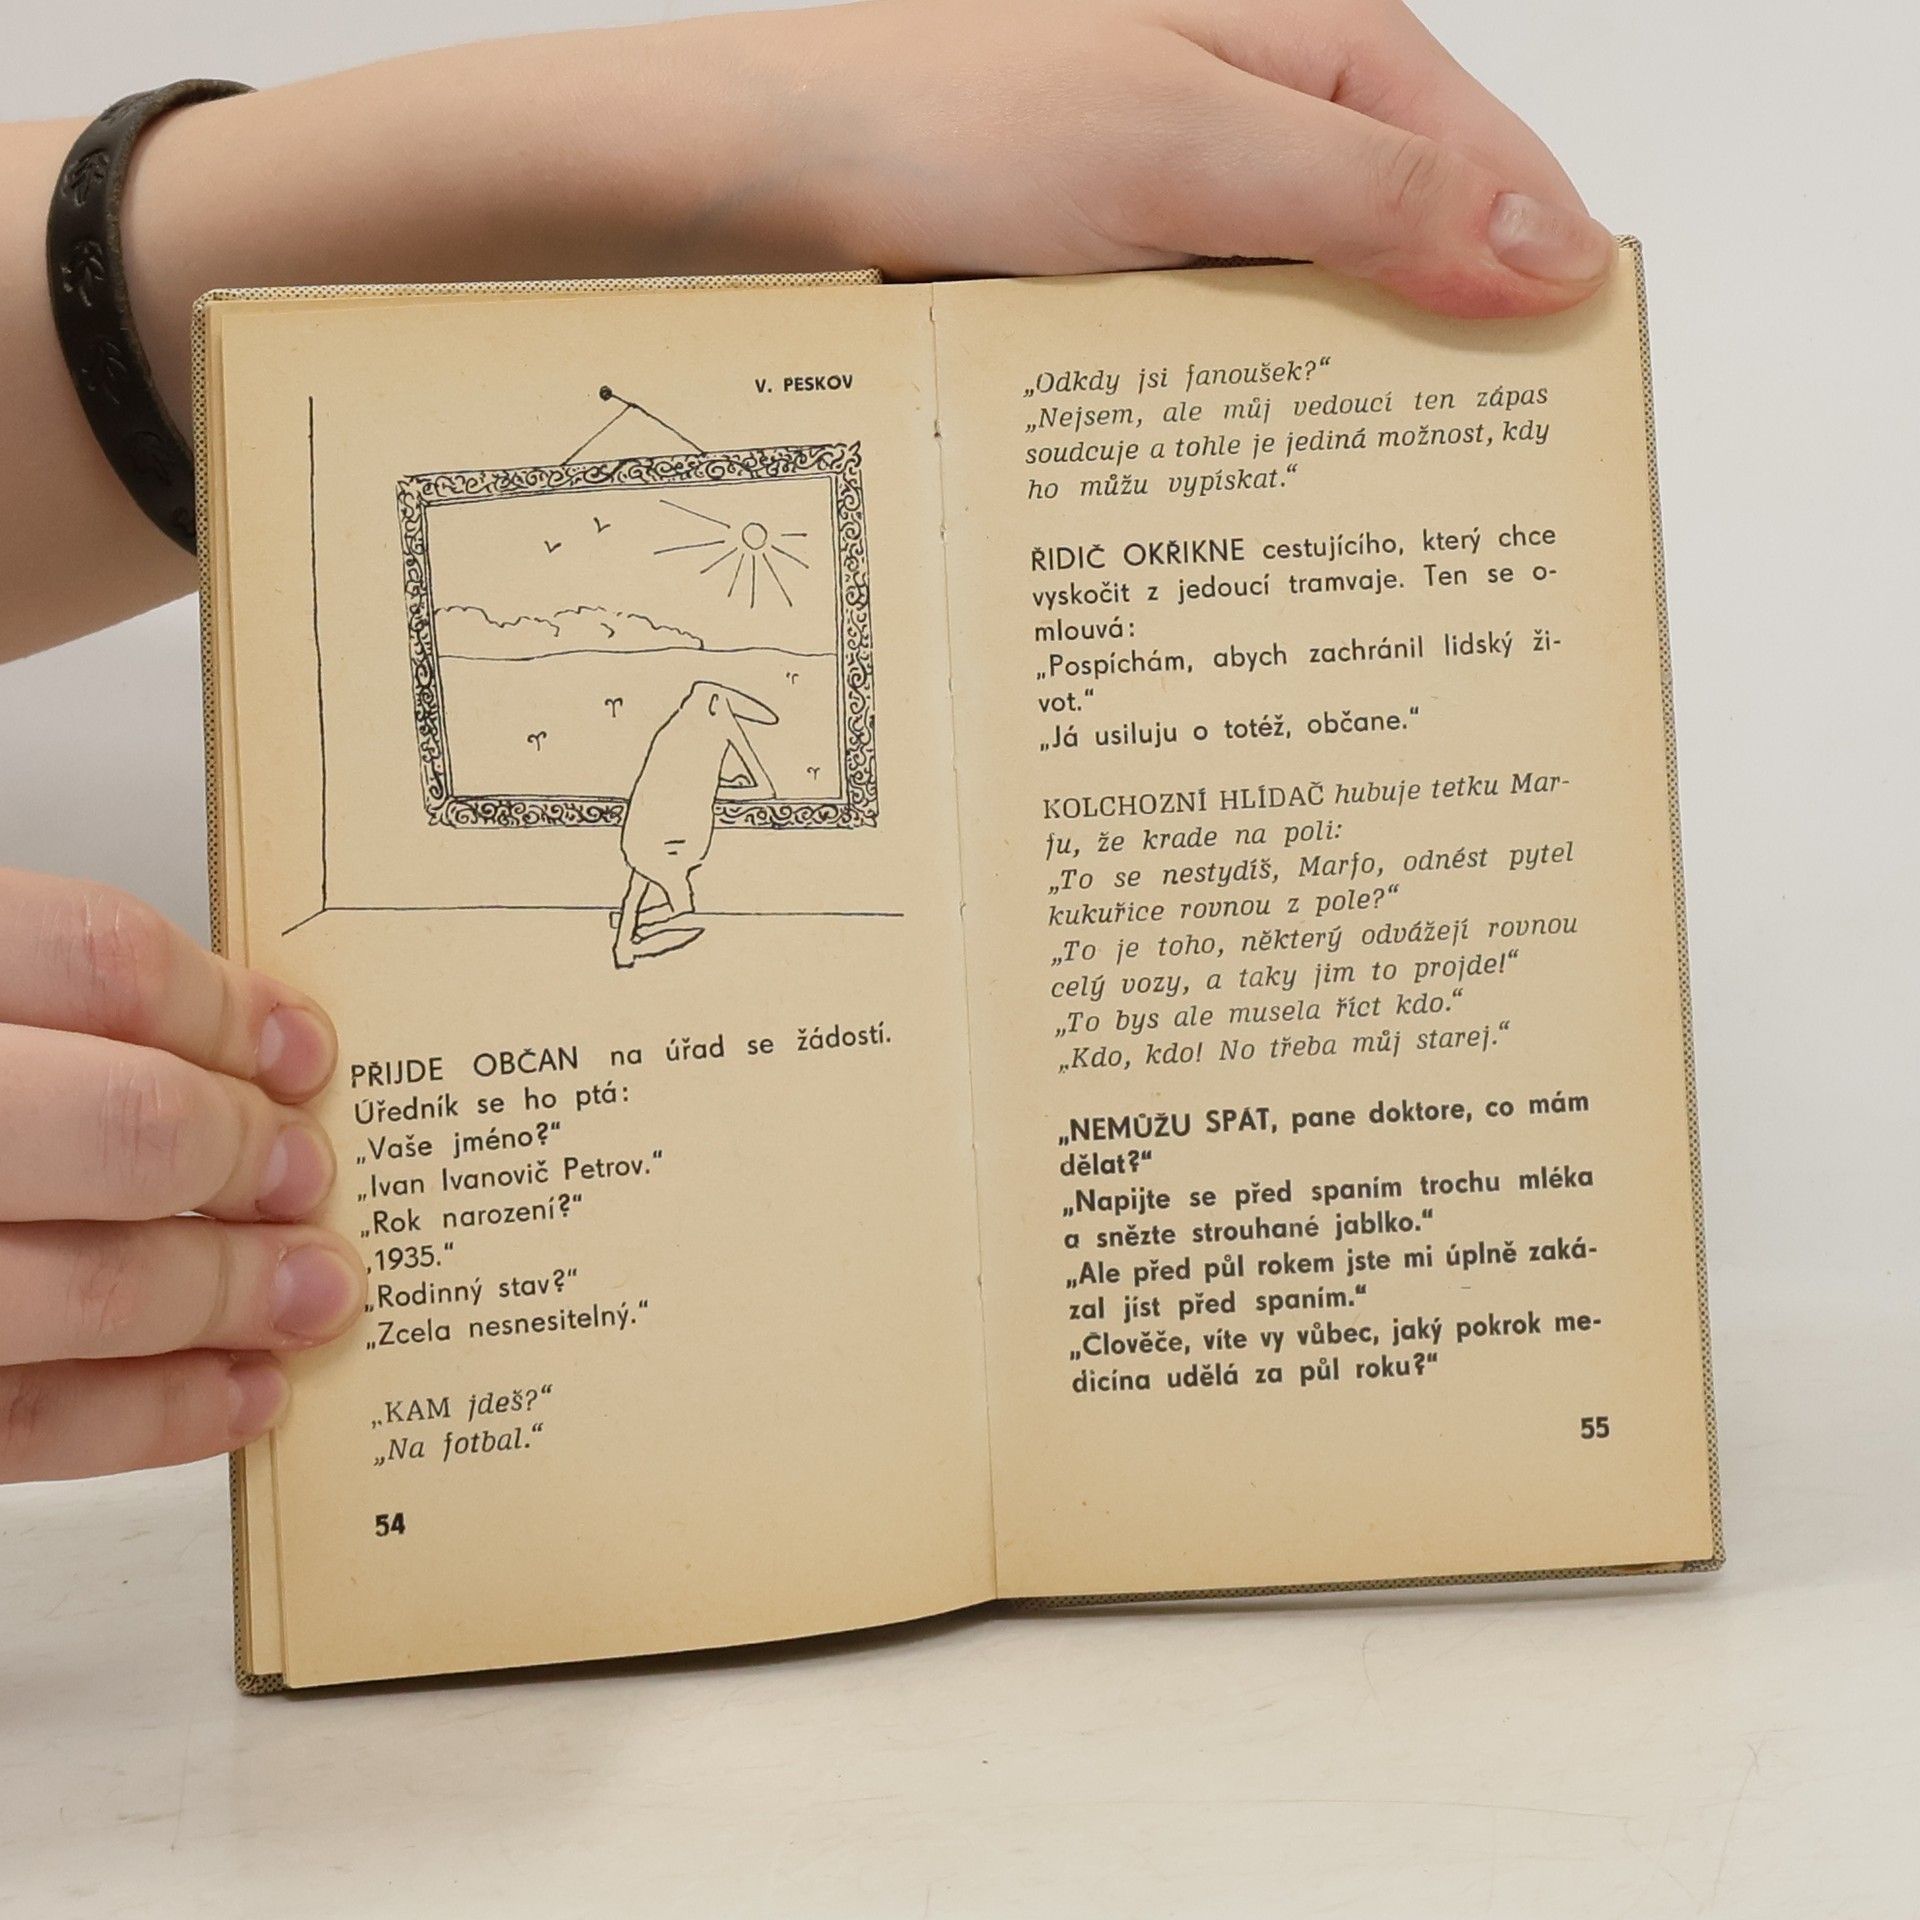 V. PESKOV
PŘIJDE OBČAN na úřad se žádostí.
Úředník se ho ptá:
„Vaše jméno?“
„Ivan Ivanovič Petrov.“
„Rok narození?“
„1935.“
„Rodinný stav?“
„Zcela nesnesitelný.“
„KAM jdeš?“
„Na fotbal.“
54
„Odkdy jsi fanoušek?“
„Nejsem, ale můj vedoucí ten zápas
soudcuje a tohle je jediná možnost, kdy
ho můžu vypískat.“
ŘIDIČ OKŘIKNE cestujícího, který chce
vyskočit z jedoucí tramvaje. Ten se o-
mlouvá:
„Pospíchám, abych zachránil lidský ži-
vot.“
„Já usiluju o totéž, občane.“
KOLCHOZNÍ HLÍDAČ hubuje tetku Mar-
fu, že krade na poli:
„To se nestydíš, Marfo, odnést pytel
kukuřice rovnou z pole?“
„To je toho, některý odvážejí rovnou
celý vozy, a taky jim to projde!“
„To bys ale musela říct kdo.“
„Kdo, kdo! No třeba můj starej.“
„NEMŮŽU SPÁT, pane doktore, co mám
dělat?“
„Napijte se před spaním trochu mléka
a snězte strouhané jablko.“
„Ale před půl rokem jste mi úplně zaká-
zal jíst před spaním.“
„Člověče, víte vy vůbec, jaký pokrok me-
dicína udělá za půl roku?“
55